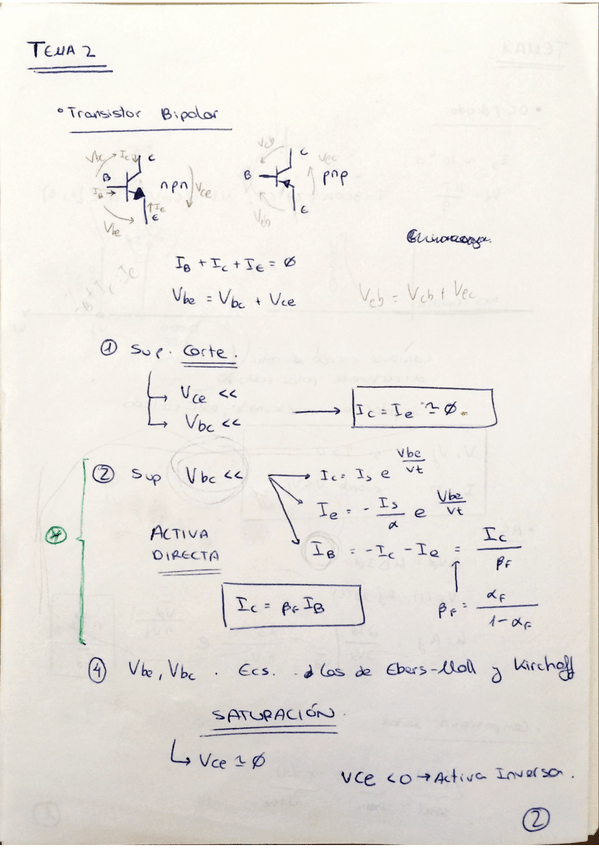 TEMA 2
• Transistor Bipolar
Vbc Ic C
B npn Vce
IB
Ie
Vbe E
Vcb C
B pnp Vec
Veb E
IB + Ic + IE = ∅
Vbe = Vbc + Vce
Veb = Vcb + Vec
① Sup. Corte.
Vce <<
Vbc <<
Ic = Ie ≃ ∅.
② Sup Vbc <<
Ic = Is e^(Vbe/Vt)
Ie = - Is/α e^(Vbe/Vt)
IB = -Ic - Ie = Ic/βF
ACTIVA
DIRECTA
Ic = βF IB
βF = αF/(1-αF)
④ Vbe, Vbc. Ecs. Las de Ebers-Moll y Kirchoff
SATURACIÓN.
Vce ≃ ∅
VCE <0 → Activa Inversa.
②